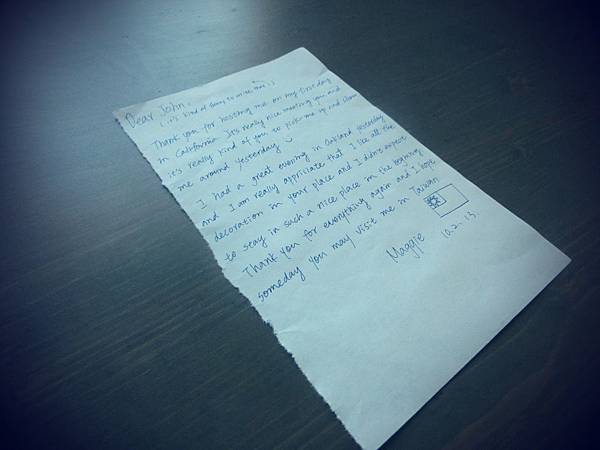 Dear John,
(it's kind of funny to write this :))
Thank you for hosting me on my first day
in California. It's really nice meeting you and
it's really kind of you to pick me up and show
me around yesterday :)
I had a great evening in Oakland yesterday
and I am really appriciate that I like all the
decoration in your place and I didn't expect
to stay in such a nice place in the beginning
Thank you for everything again and I hope
someday you may visit me in Taiwan
Maggie 10.2.13.